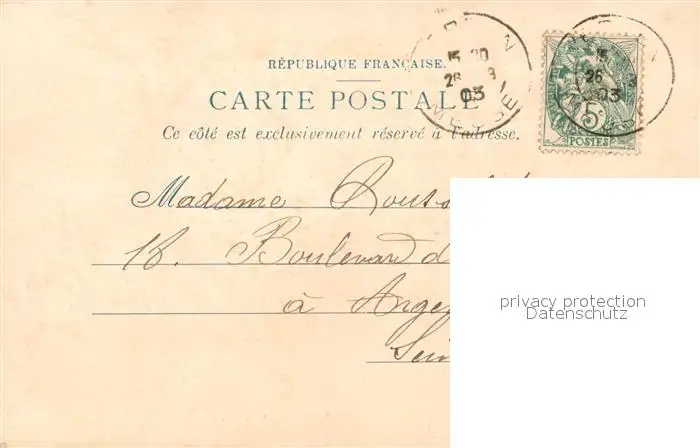 RÉPUBLIQUE FRANÇAISE.
CARTE POSTALE
Ce côté est exclusivement réservé à l'adresse.
15 20
26
03
MEUSE
15
26 3
03
5c
POSTES
Madame
18. Boulevard d
à Arge
Sei
privacy protection
Datenschutz